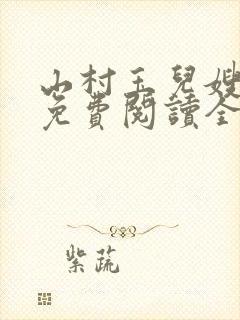 山村玉兒嫂
免費閱讀全
紫蔬